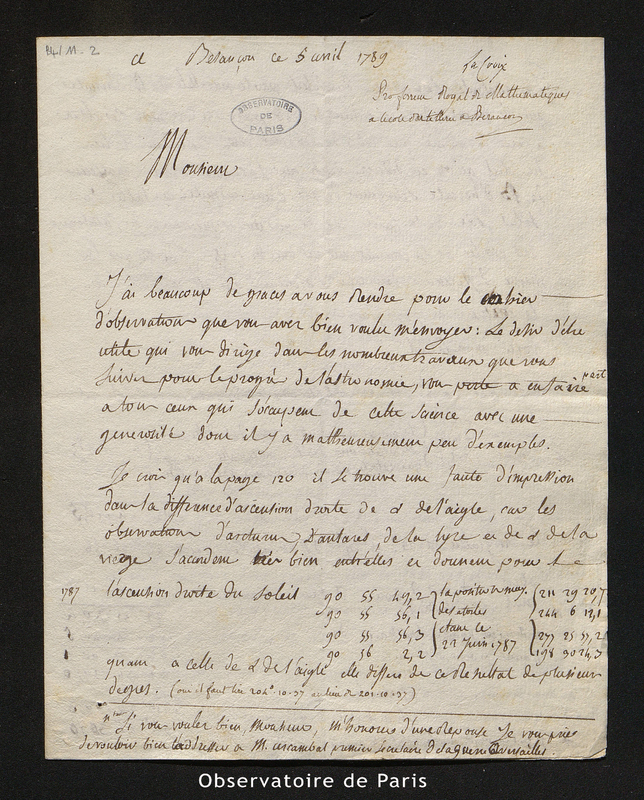 a Besançon ce 5 avril 1789
La Croix
Professeur Royal de Mathematiques
a lecole d'artillerie a Besancon
OBSERVATOIRE
DE
PARIS
Monsieur
J'ai beaucoup de graces a vous Rendre pour le cahier
d'observation que vous avez bien voulu m'envoyer: Le desir d'être
utile qui vous dirige dans les nombreux travaux que vous
suivez pour le progrés de l'astronomie, vous porte a en faire part
a tous ceux qui s'occupent de cette science avec une
generosité dont il y a malheureusement peu d'exemples.
Je crois qu'a la page 120 il se trouve une faute d'impression
dans la diffrance d'ascension droite de α de l'aigle, car les
observations d'arcturus, D'antares de la lyre et de α de la
vierge s'acordent tres bien entr'elles et donnent pour le
1787 l'ascension droite du soleil 90 55 49,2 la position moy. 211 29 20,7
90 55 56,1 des etoiles 244 6 12,1
90 55 56,3 etant le 277 25 57,2
90 56 2,2 22 Juin 1787 198 30 24,3
quant a celle de α de l'aigle elle differe de ce Resultat de plusieurs
degres. (ou il faut lire 204°-10-37 au lieu de 201-10-37)
Si vous voulez bien, Monsieur, m'honorer d'une Reponse Je vous prie
de vouloir bien l'addresser a M. cascambal premier secretaire de la guerre a Versailles.
Observatoire de Paris